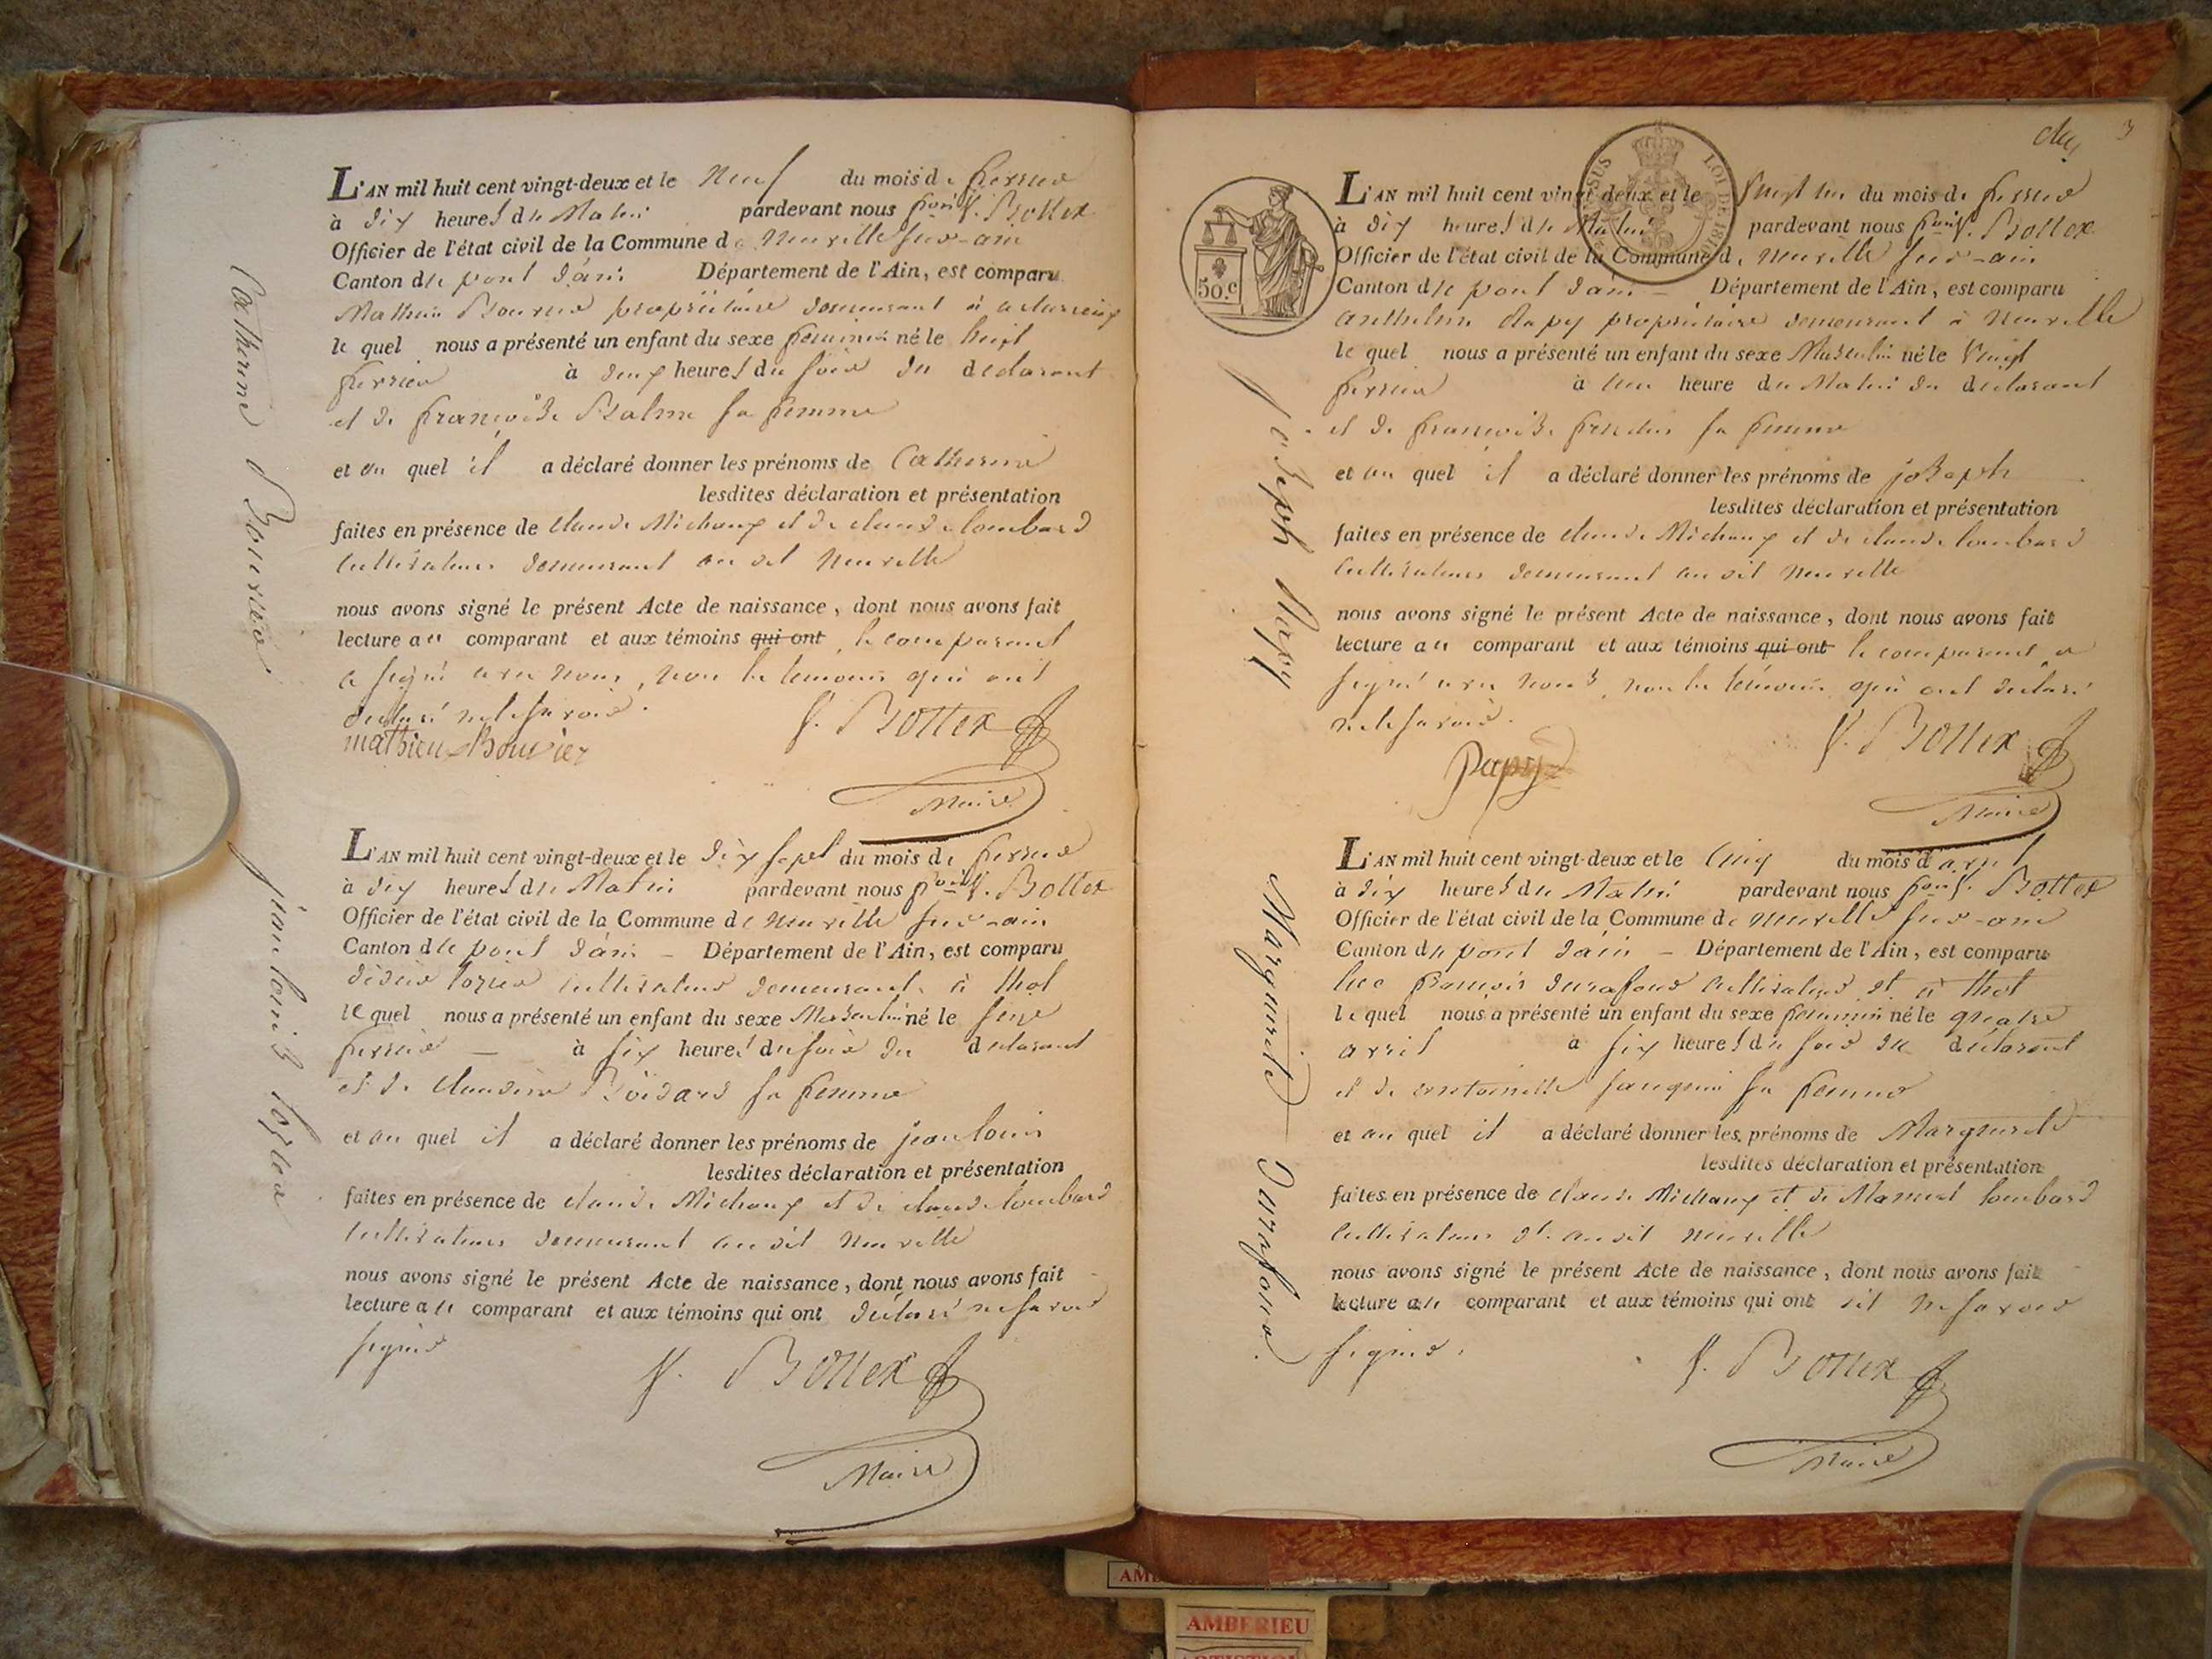 L'AN mil huit cent vingt-deux et le neuf du mois de fevrier
à dix heures du Matin pardevant nous f.ois V. Bottex
Officier de l'état civil de la Commune de neuville sur-ain
Canton de pont d'ain Département de l'Ain, est comparu
Mathieu Bouvier propriétaire demeurant à
le quel nous a présenté un enfant du sexe feminin né le huit
fevrier à deux heures du soir du declarant
et de françoise Balme sa femme
et au quel il a déclaré donner les prénoms de Catherine
lesdites déclaration et présentation
faites en présence de claude Michoux et de claude lombard
cultivateurs demeurant au dit neuville
nous avons signé le présent Acte de naissance, dont nous avons fait
lecture au comparant et aux témoins qui ont, le comparant
a signé avec nous, non les temoins qui ont
declaré ne le savoir.
mathieu Bouvier V. Bottex
Maire
Catherine Bouvier
L'AN mil huit cent vingt-deux et le dix sept du mois de fevrier
à dix heures du Matin pardevant nous f.ois V. Bottex
Officier de l'état civil de la Commune de neuville sur-ain
Canton de pont d'ain Département de l'Ain, est comparu
didier cultivateur demeurant à thol
le quel nous a présenté un enfant du sexe Masculin né le seize
fevrier à six heures du soir du declarant
et de claudine Boidard sa femme
et au quel il a déclaré donner les prénoms de jean louis
lesdites déclaration et présentation
faites en présence de claude Michoux et de claude lombard
cultivateurs demeurant au dit neuville
nous avons signé le présent Acte de naissance, dont nous avons fait
lecture au comparant et aux témoins qui ont déclaré ne savoir
signer
V. Bottex
Maire
jean louis
3
SUS LOI DE 1816
50.c
L'AN mil huit cent vingt-deux et le vingt un du mois de fevrier
à dix heures du Matin pardevant nous f.ois V. Bottex
Officier de l'état civil de la Commune de neuville sur-ain
Canton de pont d'ain Département de l'Ain, est comparu
anthelme Papy propriétaire demeurant à neuville
le quel nous a présenté un enfant du sexe Masculin né le vingt
fevrier à une heure du Matin du declarant
et de françoise sa femme
et au quel il a déclaré donner les prénoms de joseph
lesdites déclaration et présentation
faites en présence de claude Michoux et de claude lombard
cultivateurs demeurant au dit neuville
nous avons signé le présent Acte de naissance, dont nous avons fait
lecture au comparant et aux témoins qui ont le comparant a
signé avec nous, non les témoins qui ont declaré
ne le savoir.
papy V. Bottex
Maire
Joseph Papy
L'AN mil huit cent vingt-deux et le cinq du mois d'avril
à dix heures du Matin pardevant nous f.ois V. Bottex
Officier de l'état civil de la Commune de neuville sur-ain
Canton de pont d'ain Département de l'Ain, est comparu
luc françois durafour cultivateur dt. à thol
le quel nous a présenté un enfant du sexe feminin né le quatre
avril à six heures du soir du declarant
et de antoinette janquin sa femme
et au quel il a déclaré donner les prénoms de Marguerite
lesdites déclaration et présentation
faites en présence de claude Michoux et de lombard
cultivateurs dt. au dit neuville
nous avons signé le présent Acte de naissance, dont nous avons fait
lecture au comparant et aux témoins qui ont dit ne savoir
signer.
V. Bottex
Maire
Marguerite Durafour
AMBERIEU